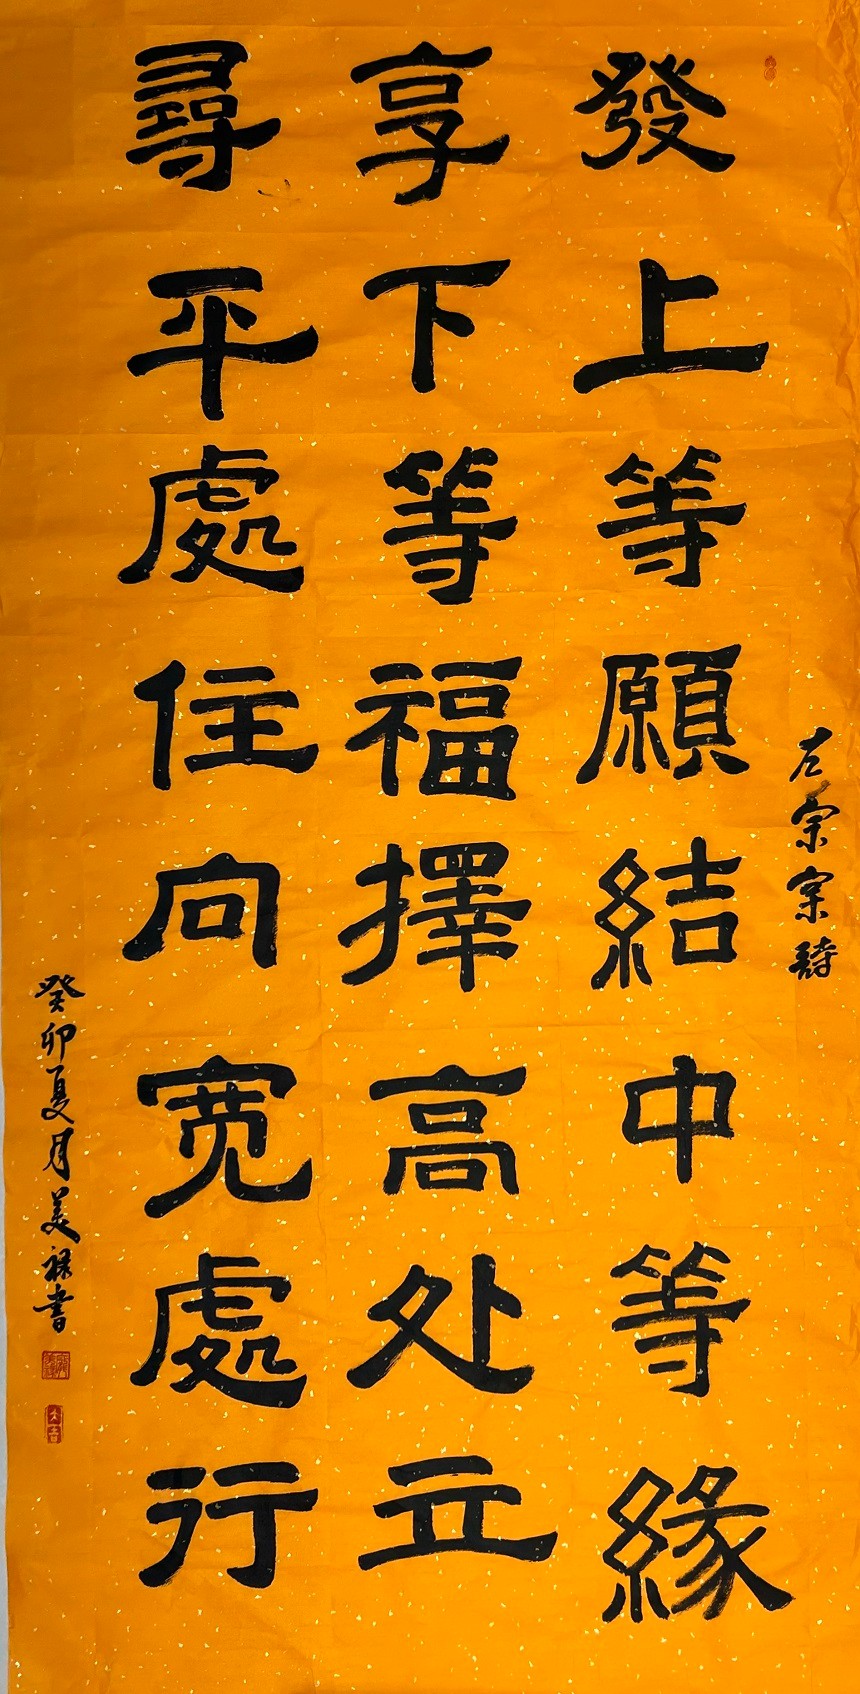 左宗棠詩
發上等願結中等緣
享下等福擇高处立
尋平處住向宽處行
癸卯夏月美禄書
大吉